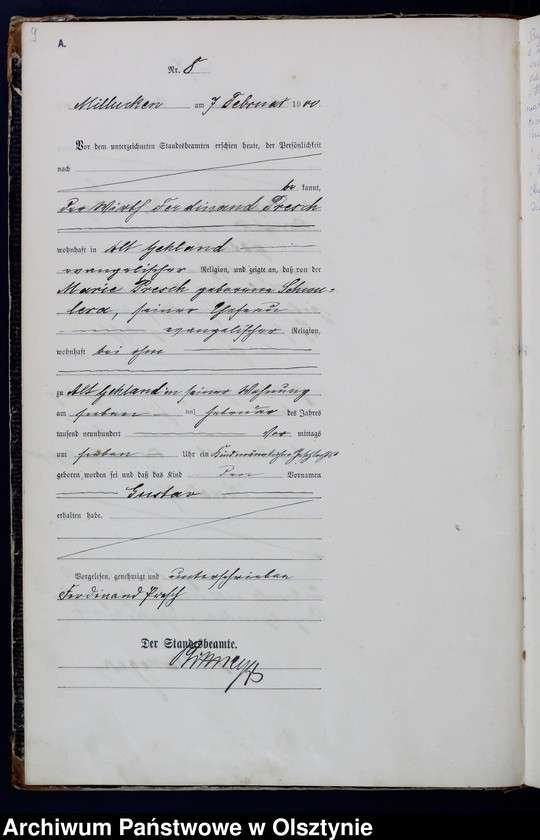 9
A.
Nr. 8
Millucken am 7 Februar 1900.
Vor dem unterzeichneten Standesbeamten erschien heute, der Persönlichkeit
nach
be kannt,
Der Wirth Ferdinand Presch
wohnhaft in Alt Gehland
evangelischer Religion, und zeigte an, daß von der
Marie Presch geborene
seiner Ehefrau
evangelischer Religion,
wohnhaft bei ihm
zu Alt Gehland in seiner Wohnung
am sieben ten Februar des Jahres
tausend neunhundert Vor mittags
um sieben Uhr ein Kind männlichen Geschlechts
geboren worden sei und daß das Kind den Vornamen
Gustav
erhalten habe.
Vorgelesen, genehmigt und unterschrieben
Ferdinand Presch
Der Standesbeamte.
Archiwum Państwowe w Olsztynie